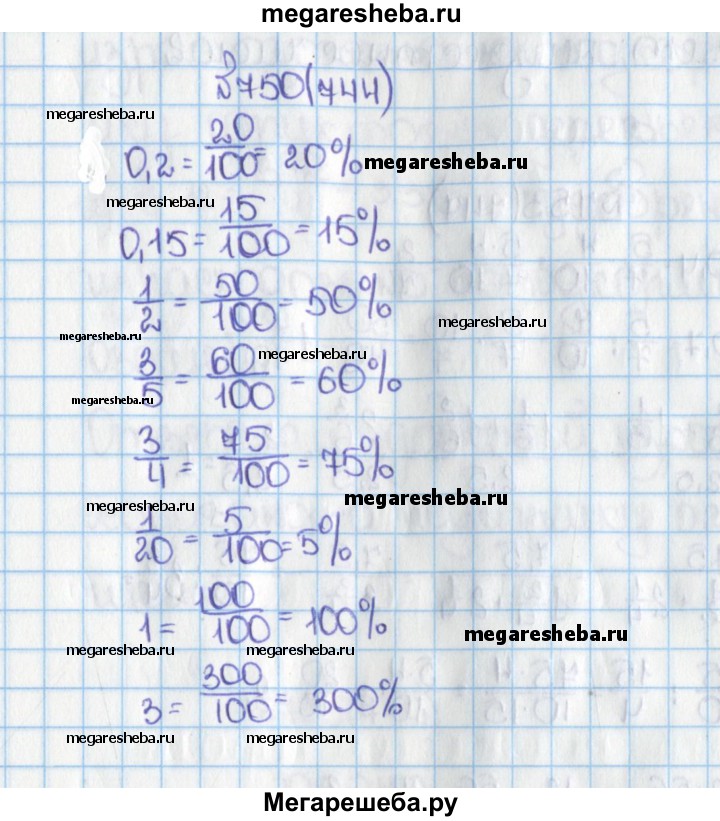 megaresheba.ru
№750(744)
megaresheba.ru
0,2 = 20/100 = 20% megaresheba.ru
megaresheba.ru
0,15 = 15/100 = 15%
1/2 = 50/100 = 50%
megaresheba.ru
megaresheba.ru
megaresheba.ru
3/5 = 60/100 = 60%
megaresheba.ru
3/4 = 75/100 = 75%
megaresheba.ru
megaresheba.ru
1/20 = 5/100 = 5%
1 = 100/100 = 100%
megaresheba.ru
megaresheba.ru megaresheba.ru
3 = 300/100 = 300%
megaresheba.ru megaresheba.ru
Мегарешеба.ру